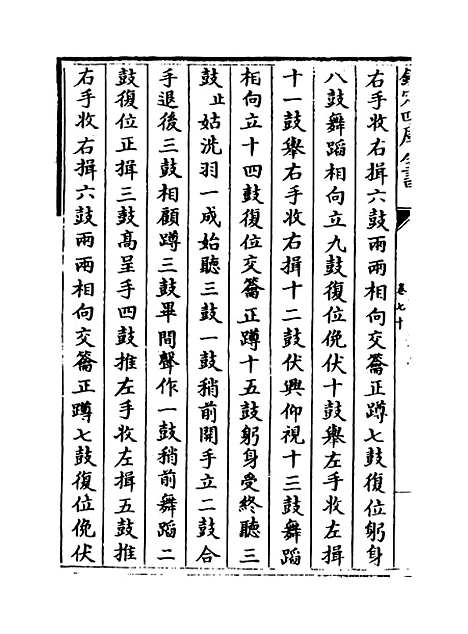 欽定四庫全書
卷七十
右手收右揖六鼓兩兩相向交籥正蹲七鼓復位躬身
八鼓舞蹈相向立九鼓復位俛伏十鼓舉左手收左揖
十一鼓舉右手收右揖十二鼓伏興仰視十三鼓舞蹈
相向立十四鼓復位交籥正蹲十五鼓躬身受終聽三
鼓止姑洗羽一成始聽三鼓一鼓稍前開手立二鼓合
手退後三鼓相顧蹲三鼓畢間聲作一鼓稍前舞蹈二
鼓復位正揖三鼓髙呈手四鼓推左手收左揖五鼓推
右手收右揖六鼓兩兩相向交籥正蹲七鼓復位俛伏